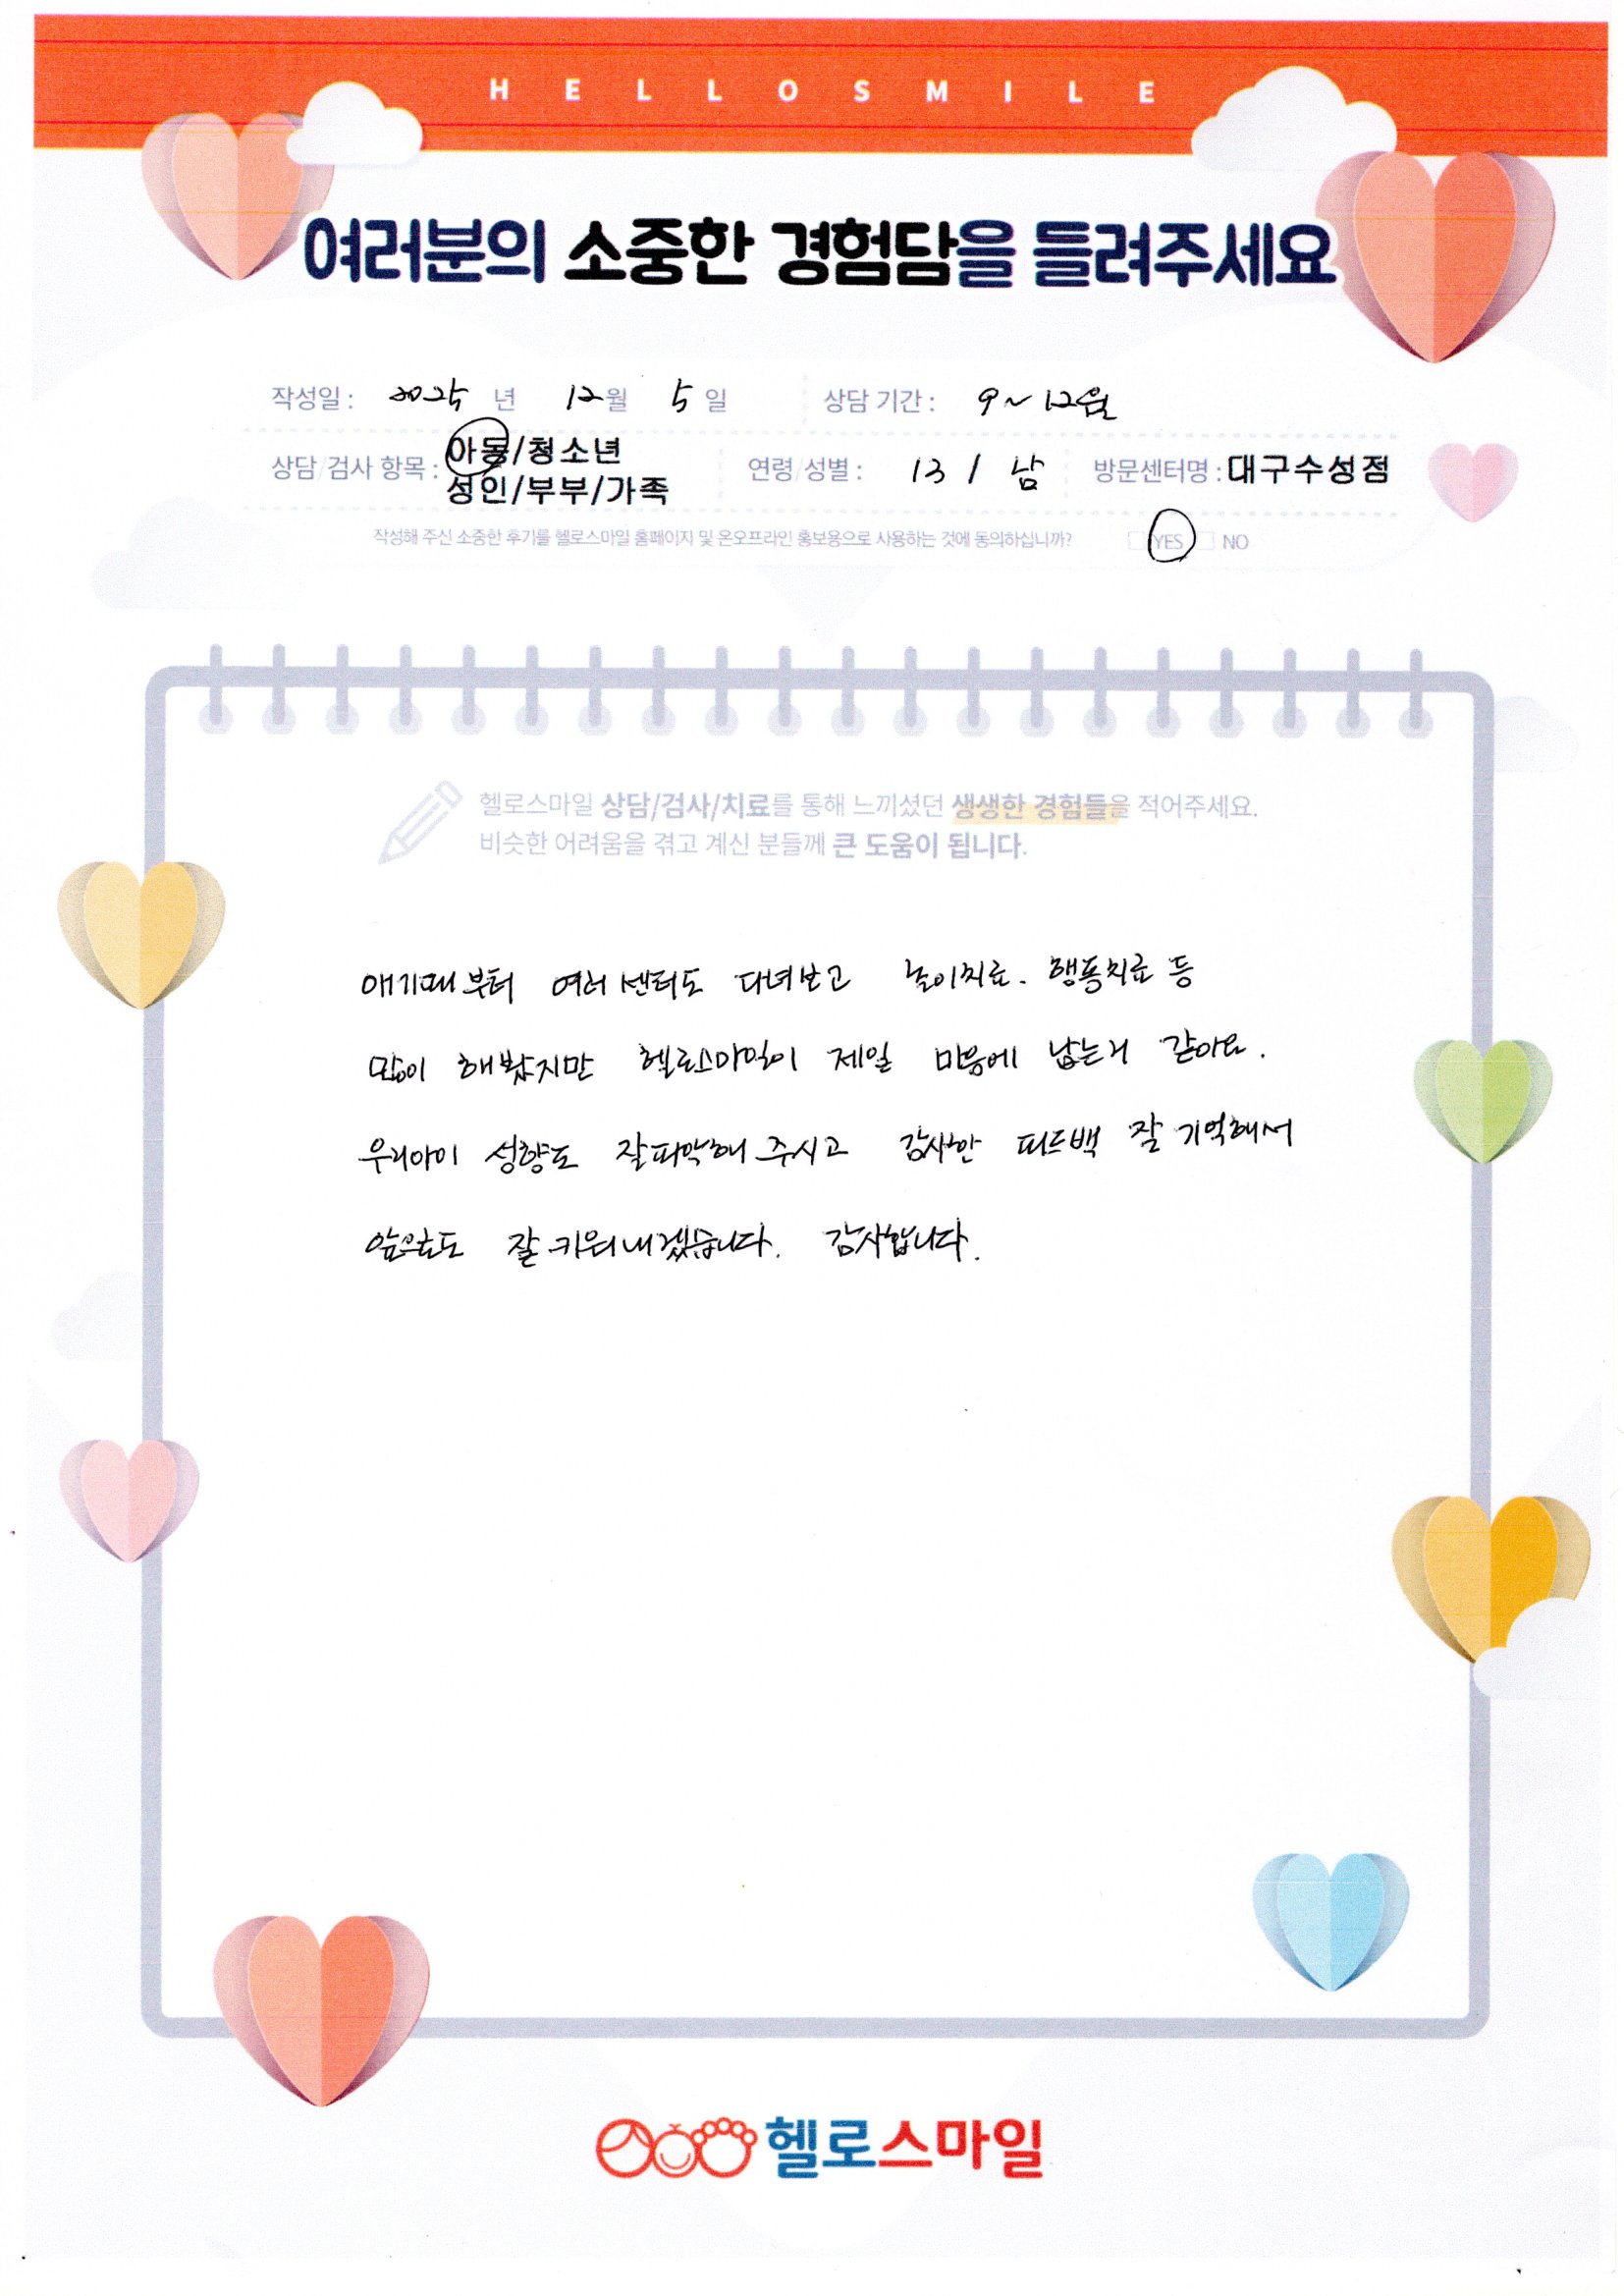 HELLOSMILE
여러분의 소중한 경험담을 들려주세요
작성일 : 2025 년 12월 5일 상담 기간 : 9~12월
상담/검사 항목 : 아동/청소년
성인/부부/가족
연령/성별 : 13 / 남 방문센터명 : 대구수성점
작성해 주신 소중한 후기를 헬로스마일 홈페이지 및 온오프라인 홍보용으로 사용하는 것에 동의하십니까? YES NO
헬로스마일 상담/검사/치료를 통해 느끼셨던 생생한 경험들을 적어주세요.
비슷한 어려움을 겪고 계신 분들께 큰 도움이 됩니다.
애기때부터 여러 센터도 다녀보고 놀이치료. 행동치료 등
많이 해봤지만 헬로스마일이 제일 마음에 남는거 같아요.
우리아이 성향도 잘파악해 주시고 감사한 피드백 잘 기억해서
앞으로도 잘 키워내겠습니다. 감사합니다.
헬로스마일